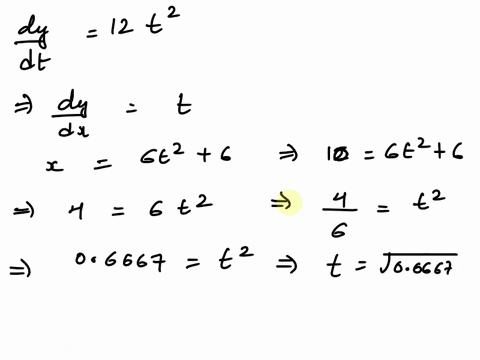 dy/dt = 12 t²
⇒ dy/dx = t
x = 6t² + 6 ⇒ 10 = 6t² + 6
⇒ 4 = 6 t² ⇒ 4/6 = t²
⇒ 0.6667 = t² ⇒ t = √0.6667